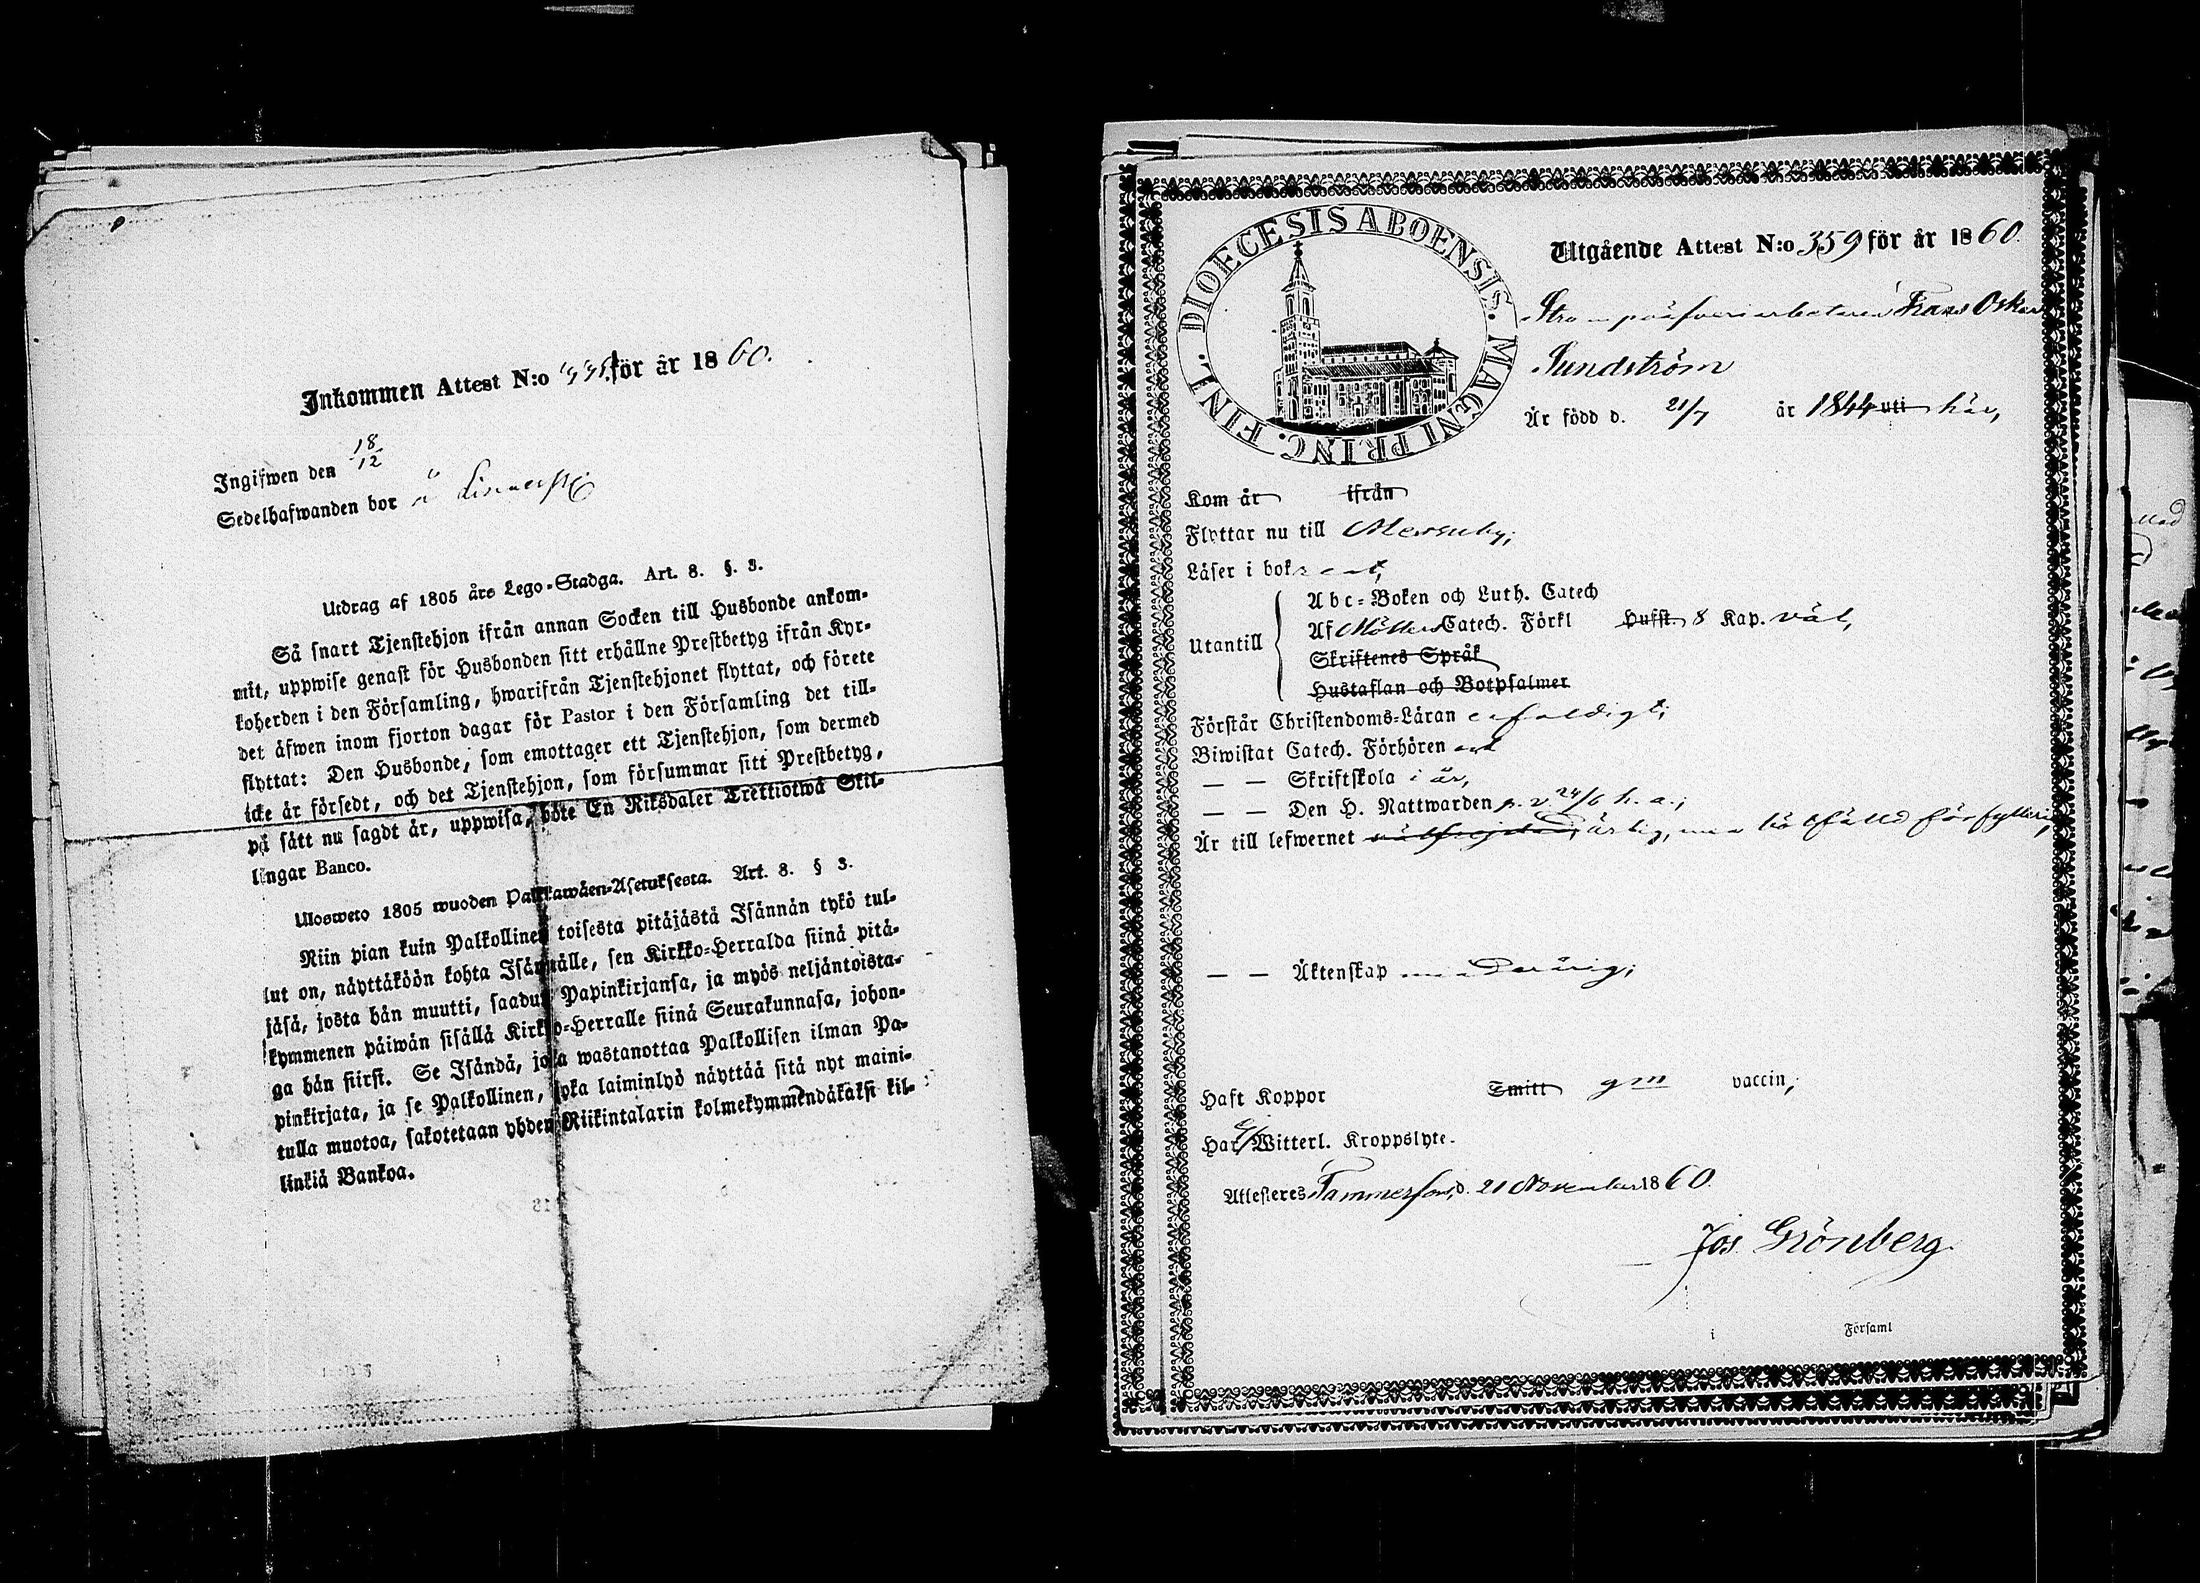 Inkommen Attest N:o för år 1860.
Ingifwen den 18/12
Sedelhafwanden bor å
Utdrag af 1805 års Lego-Stadga. Art. 8. §. 3.
Så snart Tjenstehjon ifrån annan Socken till Husbonde ankom-
mit, uppwise genast för Husbonden sitt erhållne Prestbetyg ifrån Kyr-
koherden i den Församling, hwarifrån Tjenstehjonet flyttat, och förete
det äfwen inom fjorton dagar för Pastor i den Församling det till-
flyttat: Den Husbonde, som emottager ett Tjenstehjon, som dermed
icke är försedt, och det Tjenstehjon, som försummar sitt Prestbetyg,
på sätt nu sagdt är, uppwisa, böte En Riksdaler Trettiotwå Skil-
lingar Banco.
Ulosweto 1805 wuoden Palkkawäen-Asetuksesta. Art. 8. § 3.
Niin pian kuin Palkollinen toisesta pitäjästä Isännän tykö tul-
lut on, näyttäköön kohta Isännälle, sen Kirkko-Herralda siinä pitä-
jäsä, josta hän muutti, saadun Papinkirjansa, ja myös neljäntoista-
kymmenen päiwän sisällä Kirkko-Herralle siinä Seurakunnasa, johon-
ga hän siirsi. Se Isändä, joka wastanottaa Palkollisen ilman Pa-
pinkirjata, ja se Palkollinen, joka laiminlyö näyttää sitä nyt maini-
tulla muotoa, sakotetaan yhden Riikintalarin kolmekymmendäkaksi kil-
linkiä Bankoa.
DIOECESIS ABOENSIS. MAGNI PRINC. FINL.
Utgående Attest N:o 359 för år 1860.
Frans Oskar
Sundström
Är född d. 21/7 år 1844 uti här,
Kom år ifrån
Flyttar nu till Messuby;
Läser i bok
Utantill
Abc-Boken och Luth. Catech
Af Möllers Catech. Förkl Hufst. 8 Kap. väl,
Skriftenes Språk
Hustaflan och Botpsalmer
Förstår Christendoms-Läran enfaldigt;
Biwistat Catech. Förhören
— — Skriftskola i år,
— — Den H. Nattwarden 24/6 h. a.;
Är till lefwernet ärlig, men bötfälld för fylleri;
— — Äktenskap
Haft Koppor Smitt gm vaccin,
Har Witterl. Kroppslyte.
Attesteres Tammerfors, d. 21 November 1860.
Jos. Grönberg.
i Församl